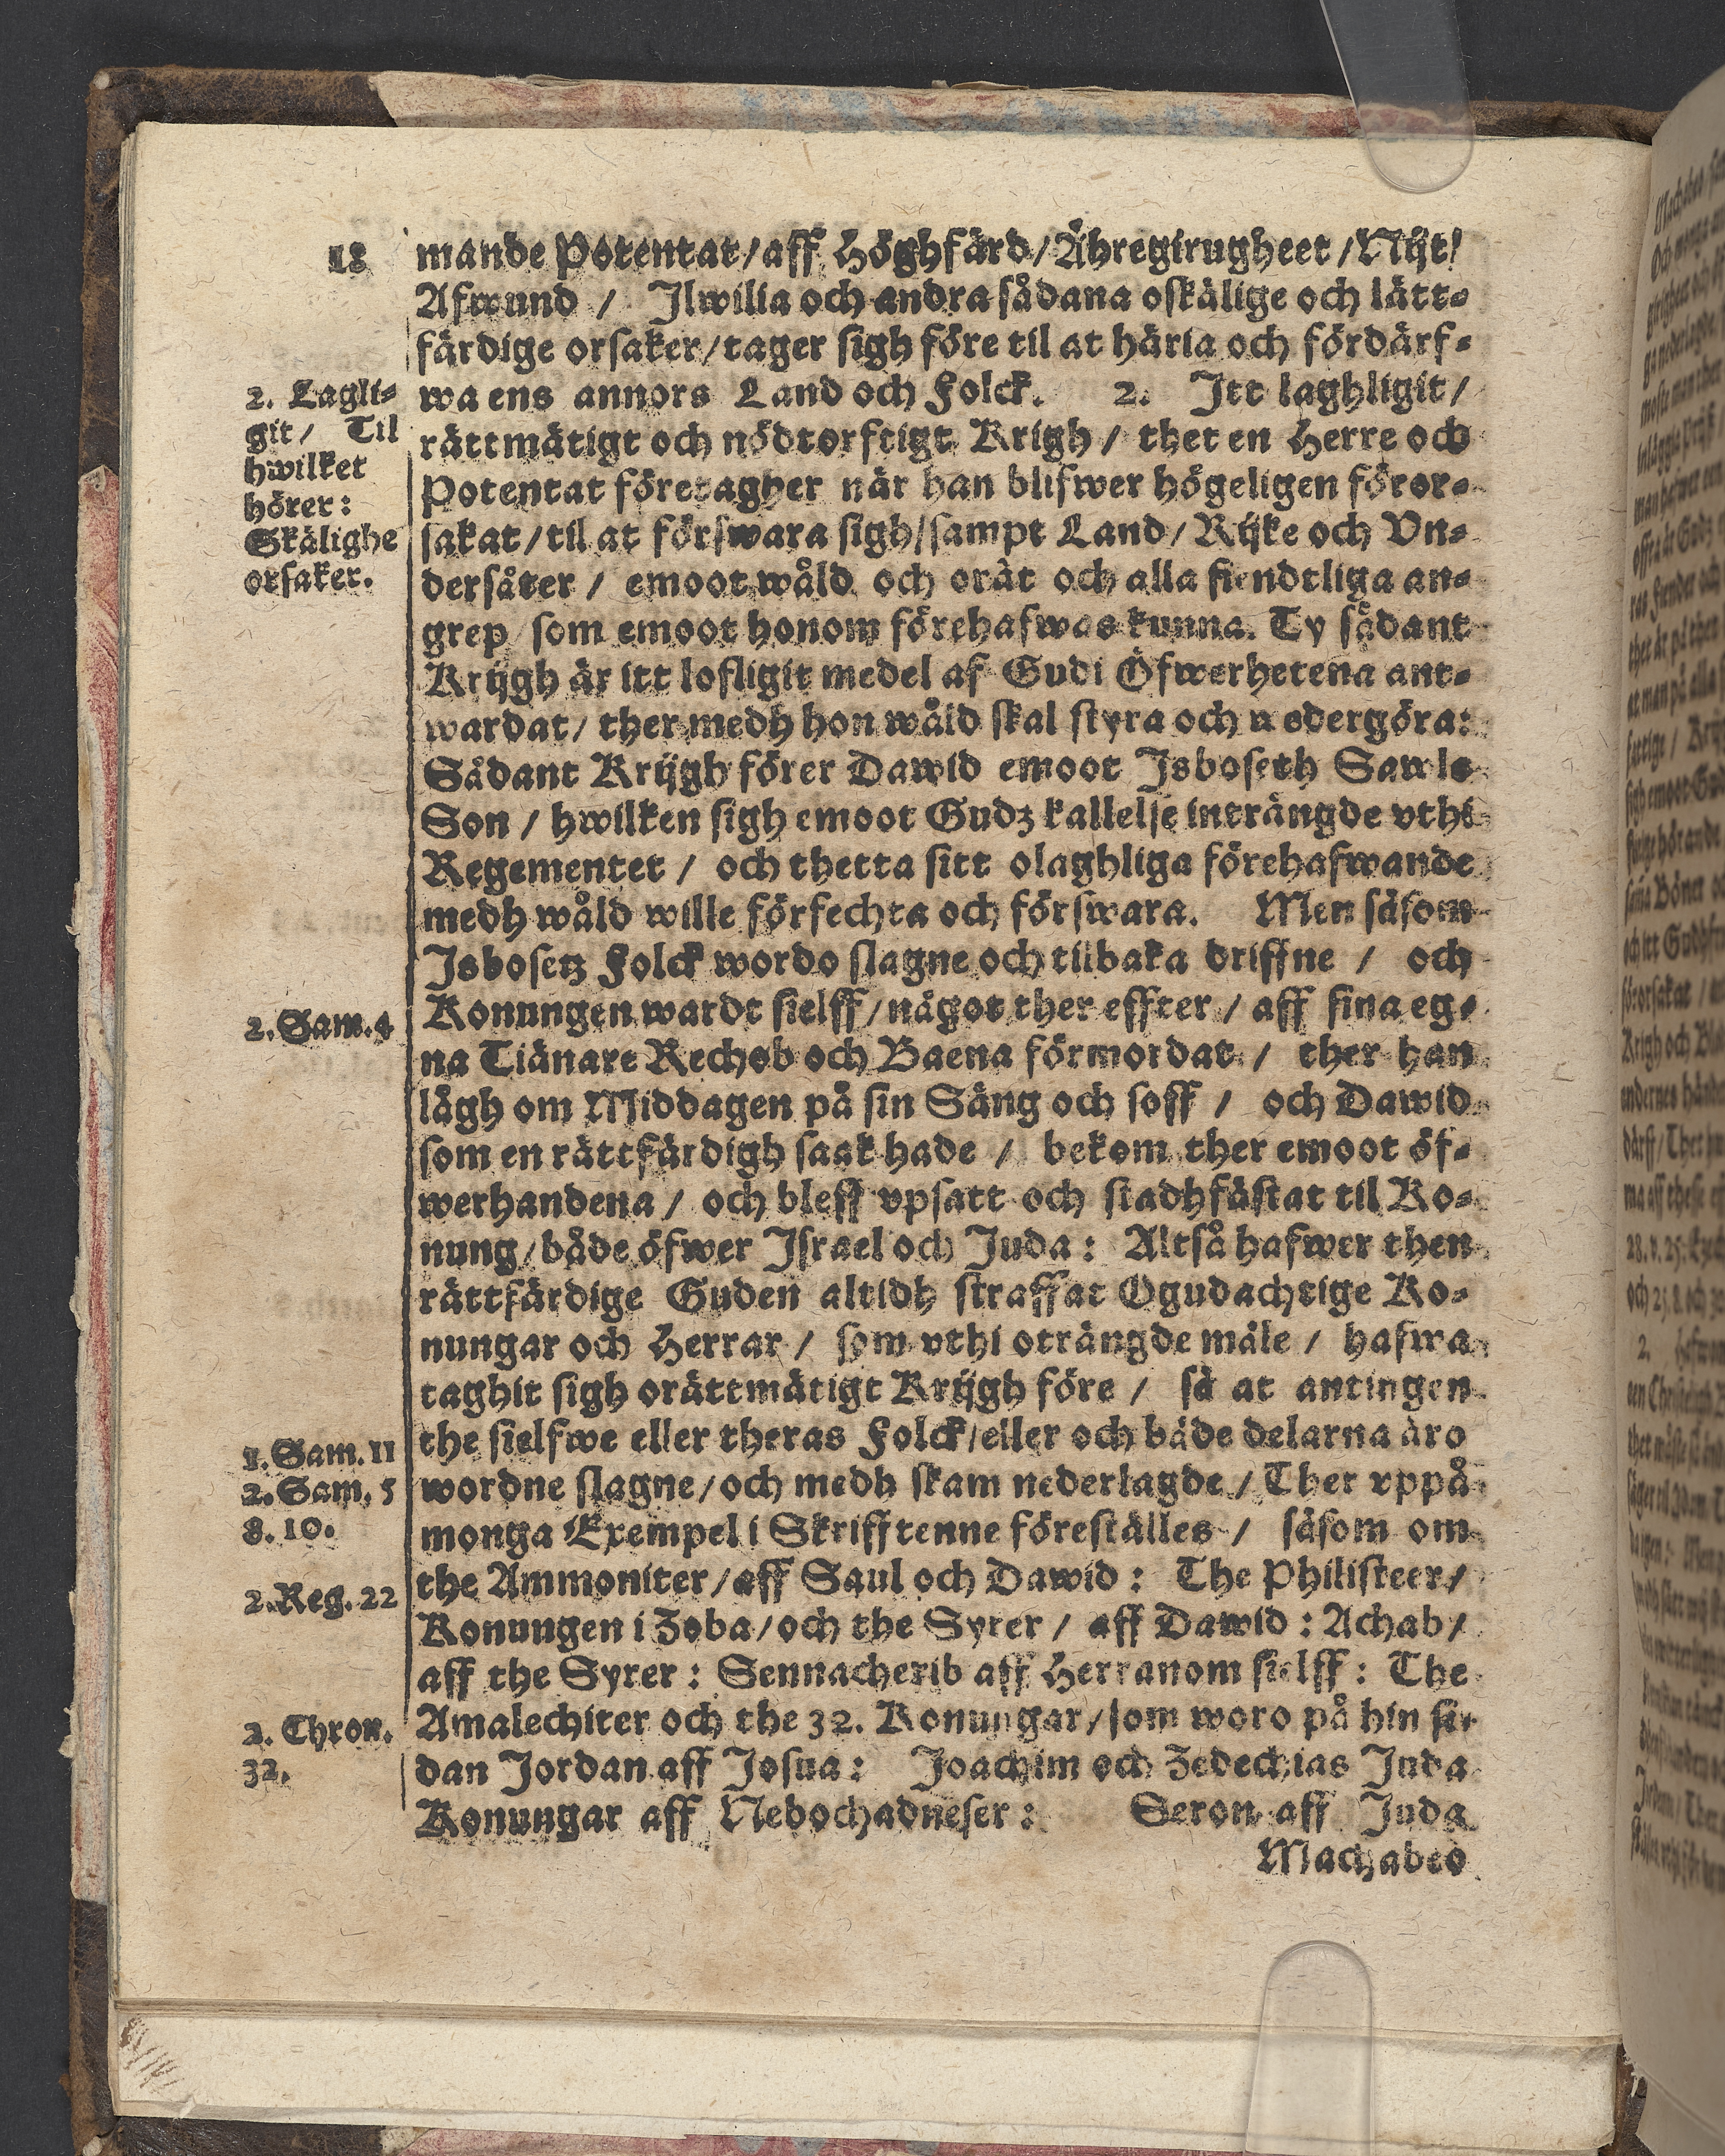 18
mande Potentat/aff Höghfärd/Ähregirugheet/Nijt/
Afwund / Jlwilia och andra sådana oskälige och lätt=
färdige orsaker/tager sigh före til at häria och fördärf=
wa ens annors Land och Folck. 2. Jtt laghligit/
rättmätigt och nödtorftigt Krigh / thet en Herre och
Potentat företagher när han blifwer högeligen föror=
sakat/til at förswara sigh/sampt Land/Rijke och Vn=
dersåter / emoot wåld och orät och alla fiendtliga an=
grep/som emoot honom förehafwas kunna. Ty sådant
Krijgh är itt lofligit medel af Gudi Öfwerhetena ant=
wardat/ ther medh hon wåld skal styra och nedergöra:
Sådant Krijgh förer Dawid emoot Jsboseth Sawls
Son / hwilken sigh emoot Gudz kallelse inträngde vthi
Regementet / och thetta sitt olaghliga förehafwande
medh wåld wille förfechta och förswara. Men såsom
Jsbosetz Folck wordo slagne och tilbaka driffne / och
Konungen wardt sielff/något ther effter / aff sina eg=
na Tiänare Rechob och Baena förmordat / ther han
lågh om Middagen på sin Säng och soff / och Dawid
som en rättfärdigh saak hade / bekom ther emoot öf=
werhandena / och bleff vpsatt och stadhfästat til Ko=
nung/både öfwer Jsrael och Juda: Altså hafwer then
rättfärdige Guden altidh straffat Ogudachtige Ko=
nungar och Herrar / som vthi oträngde måle / hafwa
taghit sigh orättmätigt Krijgh före / så at antingen
the sielfwe eller theras Folck/eller och både delarna äro
wordne slagne/och medh skam nederlagde / Ther vppå
monga Exempel i Skrifftenne föreställes / såsom om
the Ammoniter/aff Saul och Dawid: The Philisteer/
Konungen i Zoba/och the Syrer / aff Dawid: Achab/
aff the Syrer: Sennacherib aff Herranom sielff: The
Amalechiter och the 32. Konungar/som woro på hin si=
dan Jordan aff Josua: Joachim och Zedechias Juda
Konungar aff Nebochadneser: Seron aff Juda
Machabeo
2. Lagli=
git/ Til
hwilket
hörer:
Skälighe
orsaker.
2. Sam. 4
1. Sam. 11
2. Sam. 5
8. 10.
2. Reg. 22
2. Chron.
32.